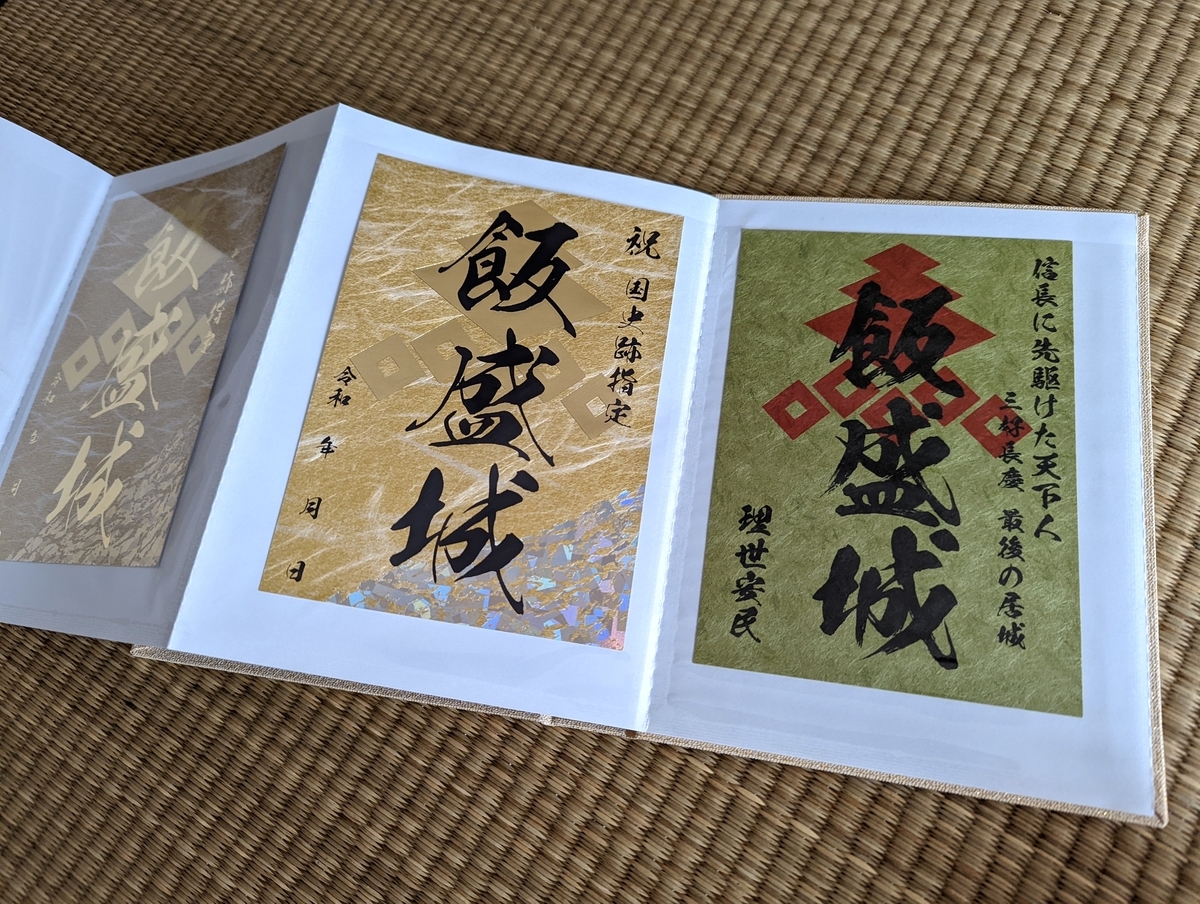 信長に先駆けた天下人
三好長慶 最後の居城
飯盛城
理世安民
祝 国史跡指定
飯盛城
令和 年 月 日
飯盛城